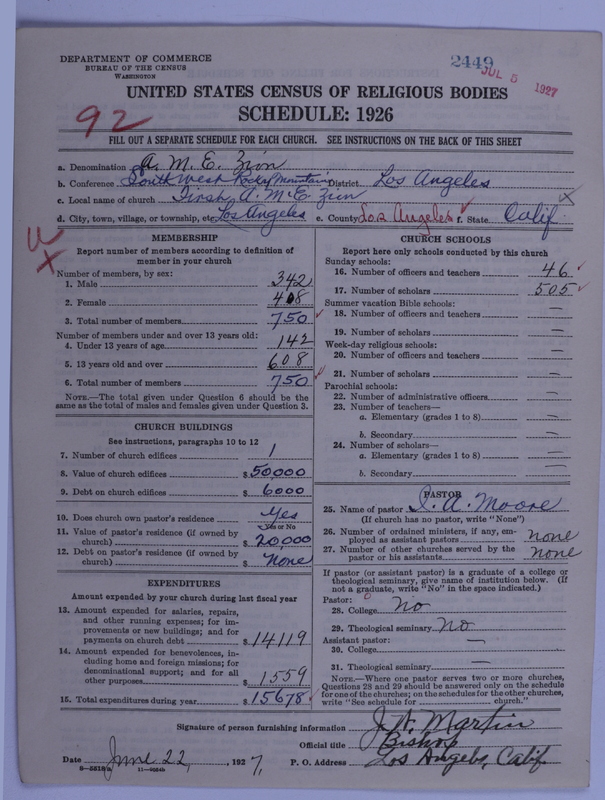 DEPARTMENT OF COMMERCE
BUREAU OF THE CENSUS
WASHINGTON
2449
JUL 5 1927
UNITED STATES CENSUS OF RELIGIOUS BODIES
SCHEDULE: 1926
92
FILL OUT A SEPARATE SCHEDULE FOR EACH CHURCH. SEE INSTRUCTIONS ON THE BACK OF THIS SHEET
a. Denomination A. M. E. Zion
b. Conference Southwest Rocky Mountain District Los Angeles
c. Local name of church First A. M. E. Zion
d. City, town, village, or township, etc. Los Angeles e. County Los Angeles f. State Calif.
MEMBERSHIP
Report number of members according to definition of
member in your church
Number of members, by sex:
1. Male 342
2. Female 408
3. Total number of members 750
Number of members under and over 13 years old:
4. Under 13 years of age 142
5. 13 years old and over 608
6. Total number of members 750
NOTE.—The total given under Question 6 should be the
same as the total of males and females given under Question 3.
CHURCH BUILDINGS
See instructions, paragraphs 10 to 12
7. Number of church edifices 1
8. Value of church edifices $50,000
9. Debt on church edifices $6000
10. Does church own pastor's residence Yes
Yes or No
11. Value of pastor's residence (if owned by
church) $20,000
12. Debt on pastor's residence (if owned by
church) $None
EXPENDITURES
Amount expended by your church during last fiscal year
13. Amount expended for salaries, repairs,
and other running expenses; for im-
provements or new buildings; and for
payments on church debt $14119
14. Amount expended for benevolences, in-
cluding home and foreign missions; for
denominational support; and for all
other purposes $1559
15. Total expenditures during year $15678
CHURCH SCHOOLS
Report here only schools conducted by this church
Sunday schools:
16. Number of officers and teachers 46
17. Number of scholars 505
Summer vacation Bible schools:
18. Number of officers and teachers —
19. Number of scholars —
Week-day religious schools:
20. Number of officers and teachers —
21. Number of scholars —
Parochial schools:
22. Number of administrative officers —
23. Number of teachers—
a. Elementary (grades 1 to 8) —
b. Secondary —
24. Number of scholars—
a. Elementary (grades 1 to 8) —
b. Secondary —
PASTOR
25. Name of pastor I. A. Moore
(If church has no pastor, write "None")
26. Number of ordained ministers, if any, em-
ployed as assistant pastors none
27. Number of other churches served by the
pastor or his assistants none
If pastor (or assistant pastor) is a graduate of a college or
theological seminary, give name of institution below. (If
not a graduate, write "No" in the space indicated.)
Pastor: 0
28. College No
29. Theological seminary No
Assistant pastor:
30. College —
31. Theological seminary —
NOTE.—Where one pastor serves two or more churches,
Questions 28 and 29 should be answered only on the schedule
for one of the churches; on the schedules for the other churches,
write "See schedule for church."
Signature of person furnishing information J. W. Martin
Official title Bishop
Date June 22, 1927, P. O. Address Los Angeles, Calif.